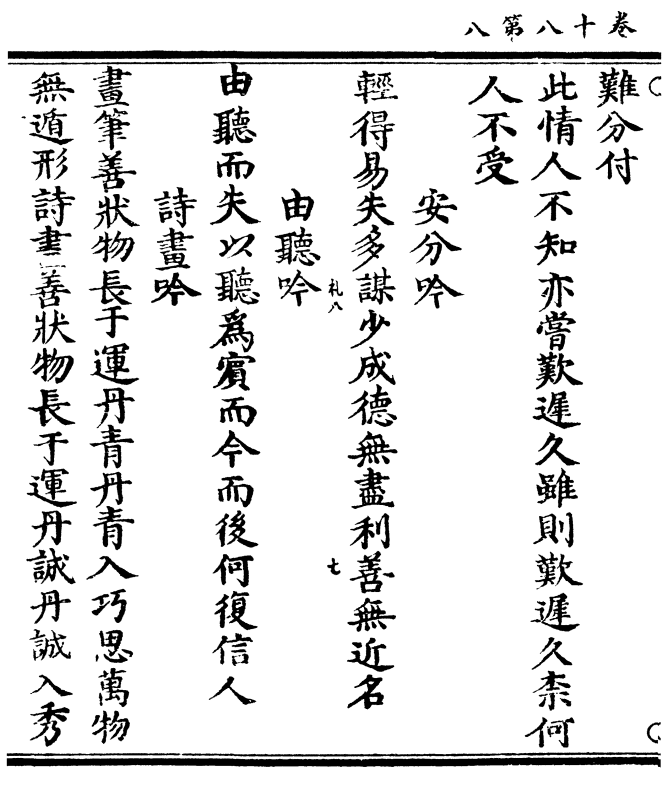 卷十八第八
難分付
此情人不知亦嘗歎遲久雖則歎遲久柰何
人不受
安分吟
輕得易失多謀少成德無盡利善無近名
礼八
七
由聽吟
由聽而失以聽爲賓而今而後何復信人
詩畫吟
畫筆善狀物長于運丹青丹青入巧思萬物
無遁形詩畫善狀物長于運丹誠丹誠入秀